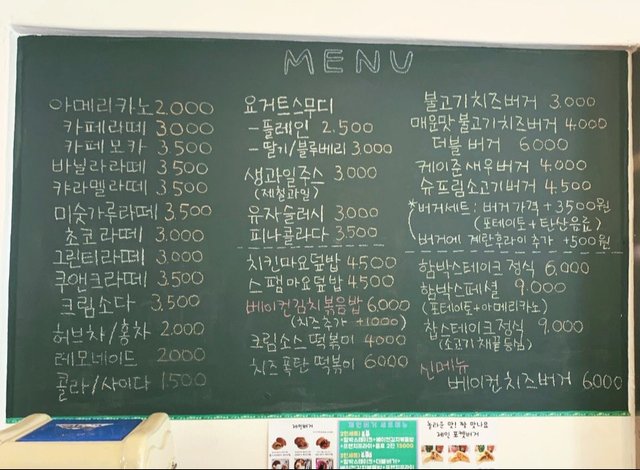 MENU
아메리카노 2.000
카페라떼 3.000
카페모카 3.500
바닐라라떼 3.500
캬라멜라떼 3.500
미숫가루라떼 3.500
초코라떼 3.000
그린티라떼 3.000
쿠앤크라떼 3.500
크림소다 3.500
허브차/홍차 2.000
레모네이드 2.000
콜라/사이다 1500
요거트스무디
- 플레인 2.500
- 딸기/블루베리 3.000
생과일주스 3.000
(제철과일)
유자슬러시 3.000
피나콜라다 3.500
치킨마요덮밥 4500
스팸마요덮밥 4500
베이컨김치볶음밥 6.000
(치즈추가 +1000)
크림소스 떡볶이 4000
치즈폭탄 떡볶이 6000
불고기치즈버거 3.000
매운맛불고기치즈버거 4.000
더블버거 6.000
케이준새우버거 4.000
슈프림소고기버거 4.500
*버거세트: 버거가격 +3500원
(포테이토+탄산음료)
버거에 계란후라이 추가 +500원
함박스테이크 정식 6.000
함박스페셜 9.000
(포테이토+아메리카노)
찹스테이크정식 9.000
(소고기 채끝등심)
신메뉴
베이컨치즈버거 6.000
제인버거
제인버거 세트메뉴
놀라운 맛! 착한 맛나요
제인 포켓버거